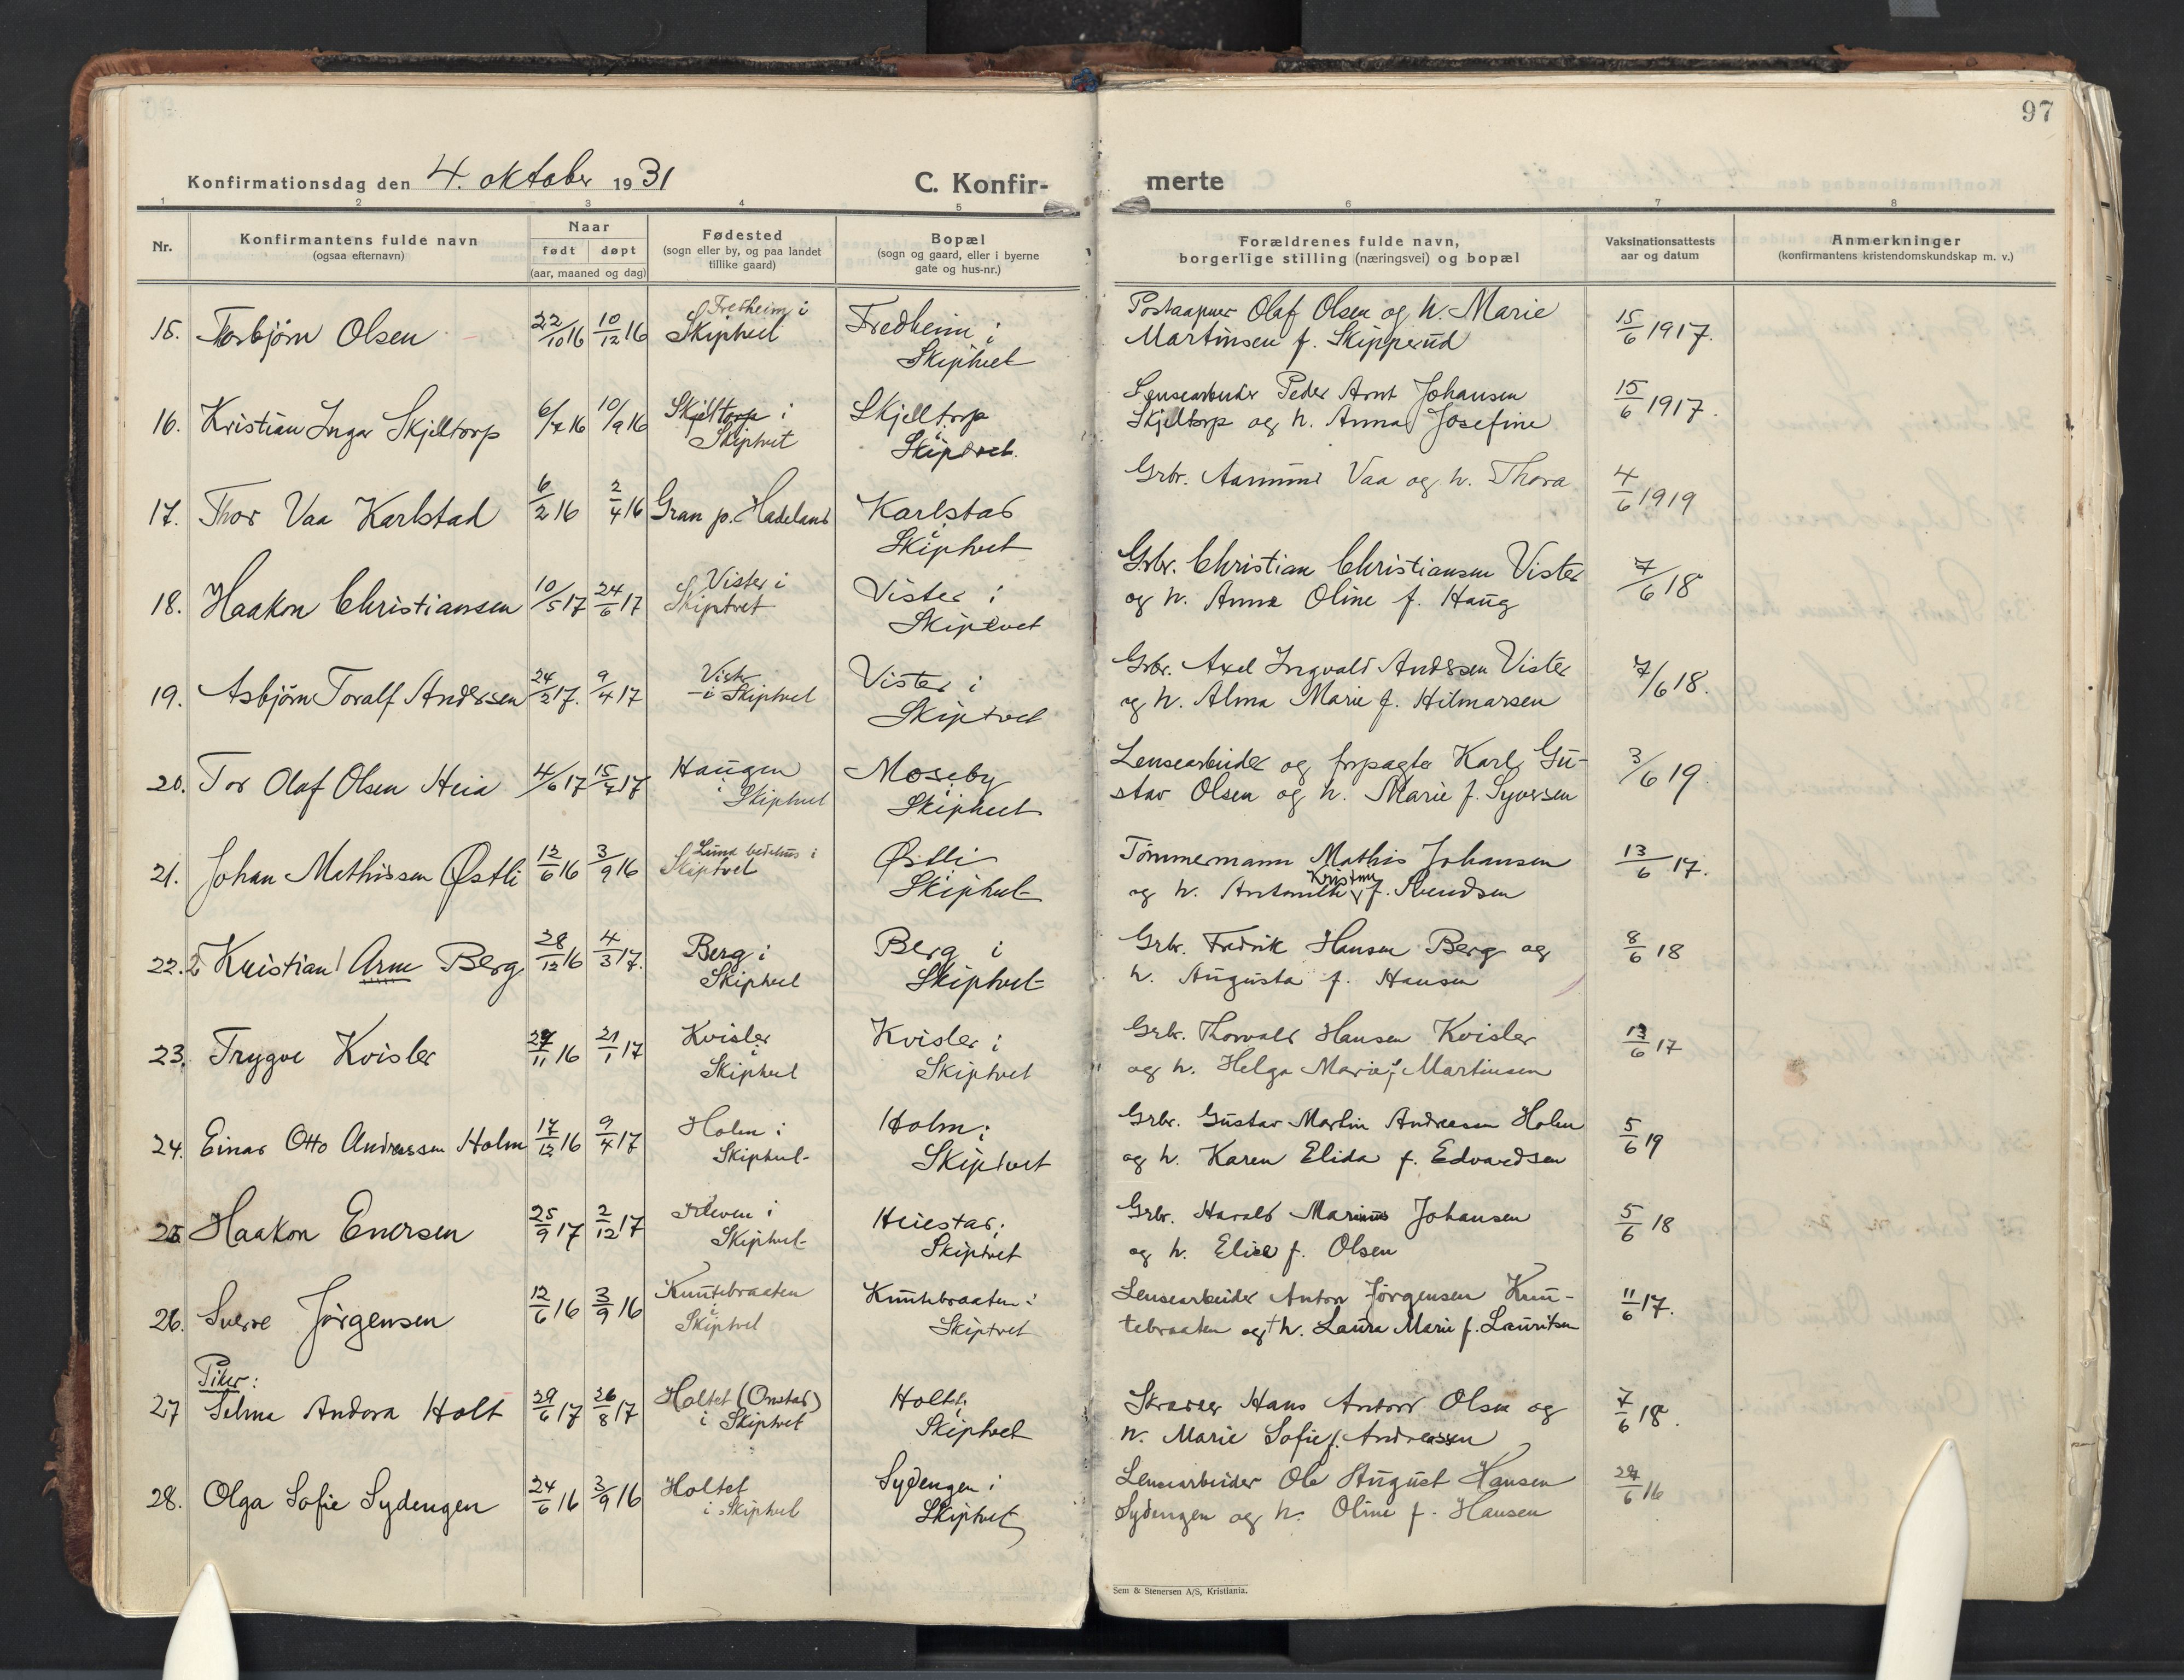 97
Konfirmationsdag den 4. oktober 1931
C. Konfir-
merte
1 2 3 4 5 6 7 8
Nr.
Konfirmantens fulde navn
(ogsaa efternavn)
Naar
født døpt
(aar, maaned og dag)
Fødested
(sogn eller by, og paa landet
tillike gaard)
Bopæl
(sogn og gaard, eller i byerne
gate og hus-nr.)
Forældrenes fulde navn,
borgerlige stilling (næringsvei) og bopæl
Vaksinationsattests
aar og datum
Anmerkninger
(konfirmantens kristendomskundskap m. v.)
15. Torbjörn Olsen 22/10 16 10/12 16 Fredheim i Skiptvet Fredheim i Skiptvet
Postaapner Olaf Olsen og h. Marie
Martinsen f. Skipperud 15/6 1917.
16. Kristian Ingar Skjeltorp 6/7 16 10/9 16 Skjeltorp i Skiptvet Skjeltorp i Skiptvet.
Lensearbeider Peder Arnt Johansen
Skjeltorp og h. Anna Josefine 15/6 1917.
17. Thor Vaa Karlstad 6/2 16 2/4 16 Gran p. Hadeland Karlstad i Skiptvet
Grbr. Aamund Vaa og h. Thora 4/6 1919
18. Haakon Christiansen 10/5 17 24/6 17 Vister i Skiptvet Vister i Skiptvet
Grbr. Christian Christiansen Vister
og h. Anna Oline f. Haug 7/6 18
19. Asbjörn Toralf Andersen 24/2 17. 9/4 17 Vister i Skiptvet Vister i Skiptvet
Grbr. Axel Ingvald Andersen Vister
og h. Alma Marie f. Hilmarsen 7/6 18.
20. Tor Olaf Olsen Heia 4/6 17 15/7 17 Haugen i Skiptvet Moseby i Skiptvet
Lensearbeider og forpagter Karl Gu-
stav Olsen og h. Marie f. Syversen 3/6 19.
21. Johan Mathissen Østli 12/6 16 3/9 16 Lund bedehus i Skiptvet Østli Skiptvet
Tömmermann Mathis Johansen
og h. Antonette Kristine f. Svendsen 13/6 17.
22. Kristian Arne Berg 28/12 16 4/3 17. Berg i Skiptvet Berg i Skiptvet
Grbr. Fredrik Hansen Berg og
h. Augusta f. Hansen 8/6 18
23. Trygve Kvisler /11 16 21/1 17 Kvisler i Skiptvet Kvisler i Skiptvet
Grbr. Thorvald Hansen Kvisler
og h. Helga Marie f. Martinsen 13/6 17
24. Einar Otto Andreassen Holm 17/12 16 9/4 17 Holm i Skiptvet Holm i Skiptvet
Grbr. Gustav Martin Andreasen Holm
og h. Karen Elida f. Edvardsen 5/6 19
25 Haakon Enersen 25/9 17 2/12 17 Kleven i Skiptvet Heiestad i Skiptvet
Grbr. Harald Marinus Johansen
og h. Elise f. Olsen 5/6 18
26. Sverre Jörgensen 12/6 16 3/9 16 Knutebraaten i Skiptvet Knutebraaten i Skiptvet
Lensearbeider Anton Jörgensen Knu-
tebraaten og † h. Laura Marie f. Lauritsen 11/6 17.
Piker:
27 Selma Andora Holt 29/6 17 26/8 17 Holtet (Onstad) i Skiptvet Holtet i Skiptvet
Skrædder Hans Anton Olsen og
h. Marie Sofie f. Andreassen 7/6 18.
28. Olga Sofie Sydengen 24/6 16 3/9 16 Holtet i Skiptvet Sydengen i Skiptvet
Lensearbeider Ole August Hansen
Sydengen og h. Oline f. Hansen /6 16
Sem & Stenersen A/S, Kristiania.